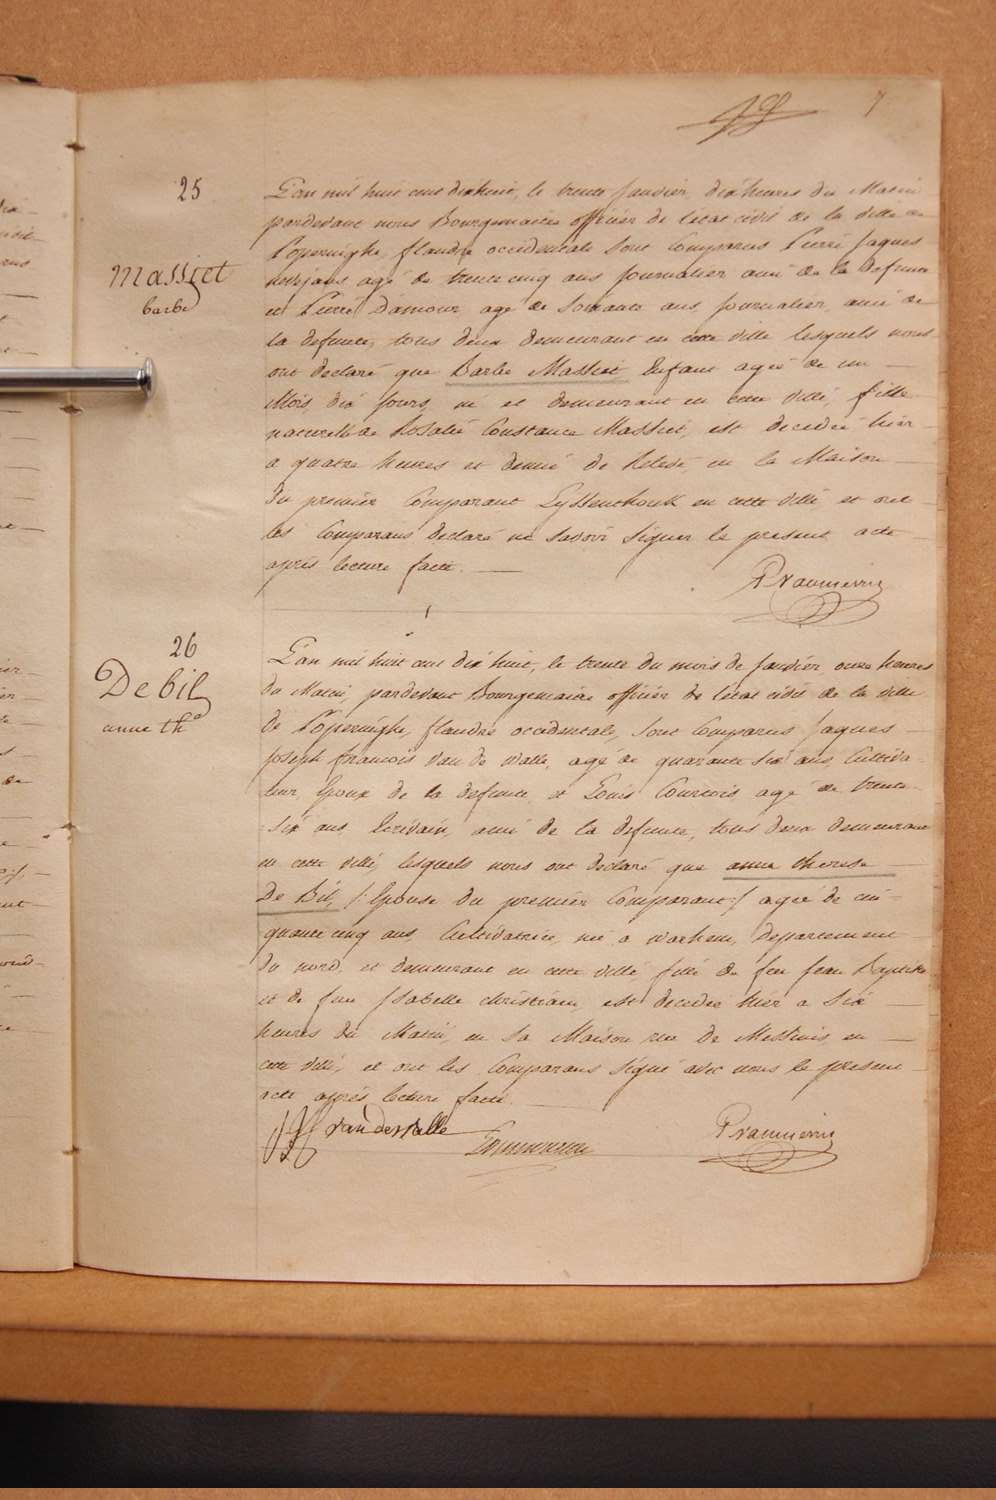 7
25
Massiet
barbe
L'an mil huit cent dixhuit, le trente Janvier, dix heures du Matin
pardevant nous Bourgemaitre officier de l'état civil de la ville de
Poperinghe, flandre occidentale sont Comparus Pierre Jaques
agé de trente cinq ans journalier ami de la defunte
et Pierre Damour agé de soixante ans, journalier, ami de
la defunte, tous deux demeurant en cette ville lesquels nous
ont declaré que Barbe Massiet Enfant agée de un —
Mois dix jours, né et demeurant en cette ville, fille
naturelle de Rosalie Constance Massiet, est decedée hier —
a quatre heures et demie de relevé, en la Maison —
du premier Comparant en cette ville et ont —
les Comparans declaré ne savoir signer le present acte —
après lecture faite. —
26
De bil
anne thᵉ
L'an mil huit cent dix huit, le trente du mois de Janvier onze heures
du Matin, pardevant Bourgemaitre officier de l'etat civil de la ville
de Poperinghe, flandre occidentale, sont Comparus Jaques —
Joseph francois Van de Walle, agé de quarante six ans, Cultiva-
teur, Epoux de la defunte, et Louis Courtois agé de trente-
six ans, Ecrivain, ami de la defunte, tous deux demeurant
en cette ville, lesquels nous ont declaré que anne therese —
De Bil, /: Epouse du premier Comparant :/ agée de cin-
quante cinq ans, Cultivatrice, née a Warhem, departement
du nord, et demeurant en cette ville fille de feu Jean Baptiste
et de feue Isabelle christiaen, est decedée hier a six —
heures du Matin, en sa Maison rue de Messines en —
cette ville, et ont les Comparans signé avec nous le present —
acte après lecture faite. —
J J F van de Walle